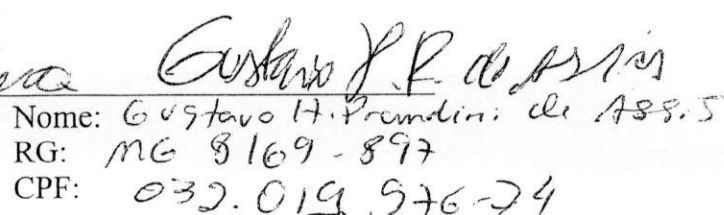 Gustavo H. P. de Assis
Nome: Gustavo H. Prandini de Assis
RG: MG 8169-897
CPF: 032.019.976-74